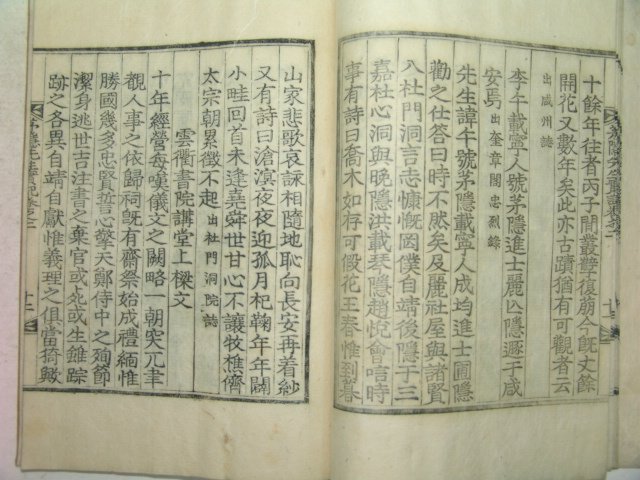 十餘年往者丙子間叢欝復崩今旣丈餘
開花又數年矣此亦古蹟猶有可觀者云
出咸州誌
李午載寧人號茅隱進士麗亡隱遯于咸
安焉 出奎章閣忠烈錄
先生諱午號茅隱載寧人成均進士圃隱
勸之仕答曰時不然矣及麗社屋與諸賢
入杜門洞言志慷慨因僕自靖後隱于三
嘉杜心洞與晩隱洪載琴隱趙悅會唁時
事有詩曰喬木如存可假花王春惟到暮
山家悲歌哀詠相隨地恥向長安再着紗
又有詩曰滄溟夜夜迎孤月杞鞠年年闢
小畦回首未逢堯舜世甘心不讓牧樵儕
太宗朝累徵不起 出杜門洞院誌
雲衢書院講堂上樑文
十年經營每嘆儀文之闕略一朝突兀聿
觀人事之依歸祠旣有齋祭始成禮緬惟
勝國幾多忠賢誓心擎天鄭侍中之殉節
潔身逃世吉注書之棄官或死或生雖踪
跡之各異自靖自獻惟義理之俱當猗歟